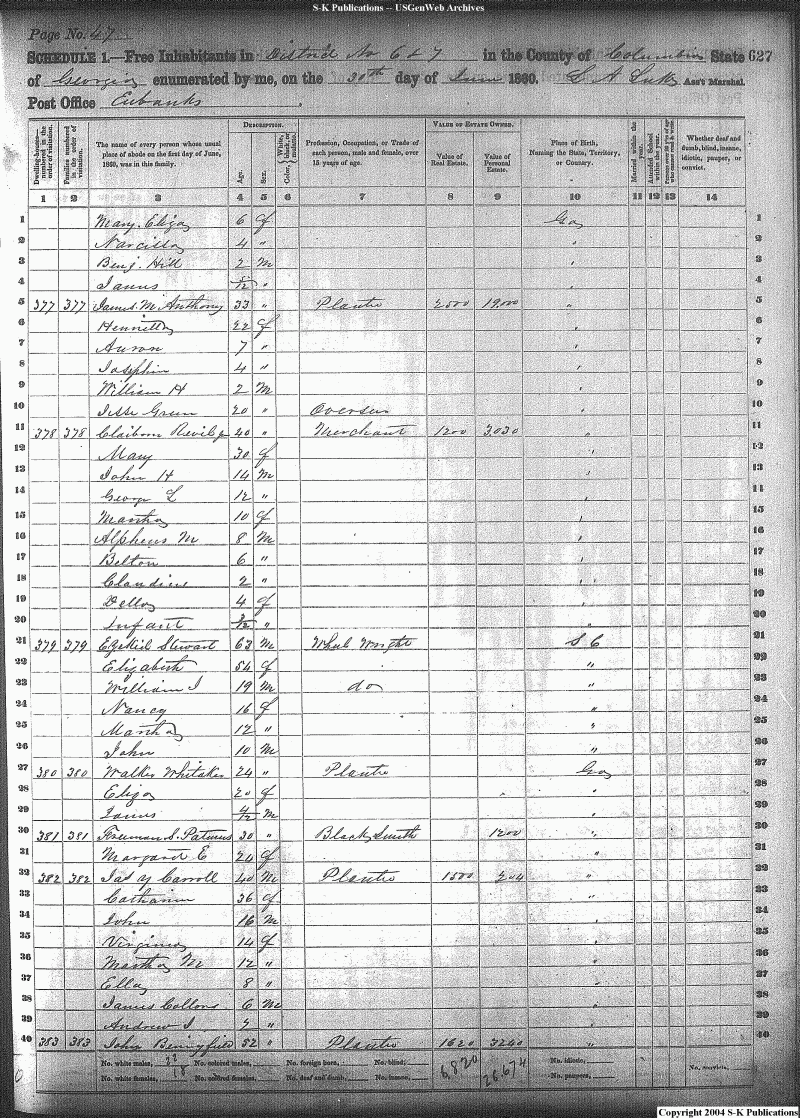 S-K Publications -- USGenWeb Archives
Page No. 47
SCHEDULE 1.—Free Inhabitants in District No 6 & 7 in the County of Columbia State 627
of Georgia enumerated by me, on the 30th day of June 1860. Ass't Marshal.
Post Office Eubanks
Dwelling-houses—numbered in the order of visitation.
Families numbered in the order of visitation.
The name of every person whose usual place of abode on the first day of June, 1860, was in this family.
DESCRIPTION.
Age.
Sex.
Color, White, black, or mulatto.
Profession, Occupation, or Trade of each person, male and female, over 15 years of age.
VALUE OF ESTATE OWNED.
Value of Real Estate.
Value of Personal Estate.
Place of Birth, Naming the State, Territory, or Country.
Married within the year.
Attended School within the year.
Whether deaf and dumb, blind, insane, idiotic, pauper, or convict.
1 2 3 4 5 6 7 8 9 10 11 12 13 14
1 Mary Eliza 6 f Ga 1
2 Narcilla 4 " " 2
3 Benj. Hill 2 m " 3
4 James /12 " " 4
5 377 377 James M Anthony 33 " Planter 2500 19,000 " 5
6 Henrietta 22 f " 6
7 Auron 7 " " 7
8 Josephin 4 " " 8
9 William H 2 m " 9
10 Jesse Green 20 " Overseer " 10
11 378 378 Claiborn Revil 40 " Merchant 1200 3030 " 11
12 Mary 30 f " 12
13 John H 14 m " 13
14 George L 12 " " 14
15 Martha 10 f " 15
16 Alpheus M 8 m " 16
17 Belton 6 " " 17
18 Claudius 2 " " 18
19 Della 4 f " 19
20 Infant /12 " " 20
21 379 379 Ezekiel Stewart 63 m Wheel Wright S C 21
22 Elizabeth 54 f " 22
23 William J 19 m do " 23
24 Nancy 16 f " 24
25 Martha 12 " " 25
26 John 10 m " 26
27 380 380 Walker Whitaker 24 " Planter Ga 27
28 Eliza 20 f " 28
29 James 4/12 m " 29
30 381 381 Freeman S. 30 " Black Smith 1200 " 30
31 Margaret E 24 f " 31
32 382 382 Carroll 40 m Planter 1500 204 " 32
33 Catharine 36 f " 33
34 John 16 m " 34
35 Virginia 14 f " 35
36 Martha M 12 " " 36
37 Ella 8 " " 37
38 James Collons 6 m " 38
39 Andrew J " " 39
40 383 383 John 52 " Planter 1620 3240 " 40
No. white males, 22 No. colored males, No. foreign born, No. blind, 6,820 26,674 No. idiotic,
No. white females, 18 No. colored females, No. deaf and dumb, No. insane, No. paupers, No. convicts,
Copyright 2004 S-K Publications